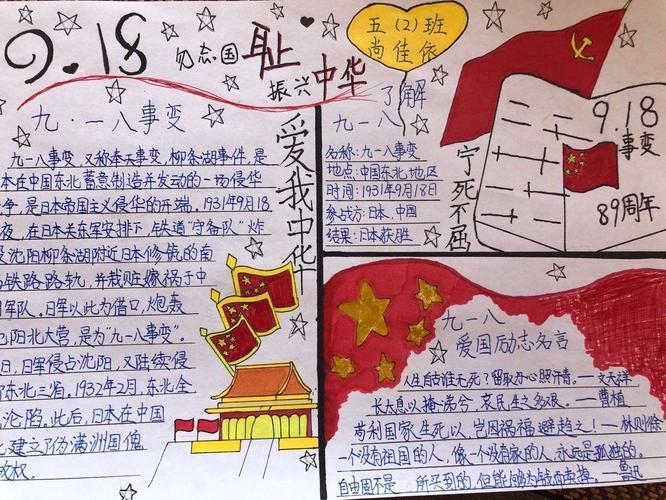 9.18 勿忘国耻
振兴中华
五(2)班
尚佳依
九·一八事变
九一八事变又称奉天事变,柳条湖事件,是
本在中国东北蓄意制造并发动的一场侵华
争,是日本帝国主义侵华的开端.1931年9月18
夜,在日本关东军安排下,铁道"守备队"炸
沈阳柳条湖附近日本修筑的南
铁路路轨,并栽赃嫁祸于中
军队。日军以此为借口,炮轰
阳北大营,是为"九一八事变"。
日,日军侵占沈阳,又陆续侵
东北三省。1932年2月,东北全
沦陷,此后,日本在中国
建立了伪满洲国傀
政权.
爱我中华
了解
九一八
名称:九一八事变
地点:中国东北地区
时间:1931年9月18日
参战方:日本,中国
结果:日本获胜
宁死不屈
9.18
事变
89周年
九一八
爱国励志名言
人生自古谁无死?留取丹心照汗青.—文天祥
长太息以掩涕兮,哀民生之多艰.—曹植
苟利国家生死以,岂因祸福避趋之!—林则徐
一个没有祖国的人,像一个没有家的人,永远是孤独的.
自由固不是 所买到的,但能够为钱而卖掉.—鲁迅